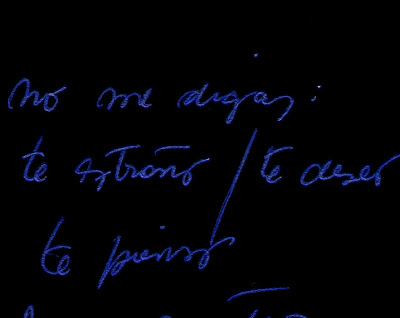 no me digas:
te extraño / te deseo
te pienso